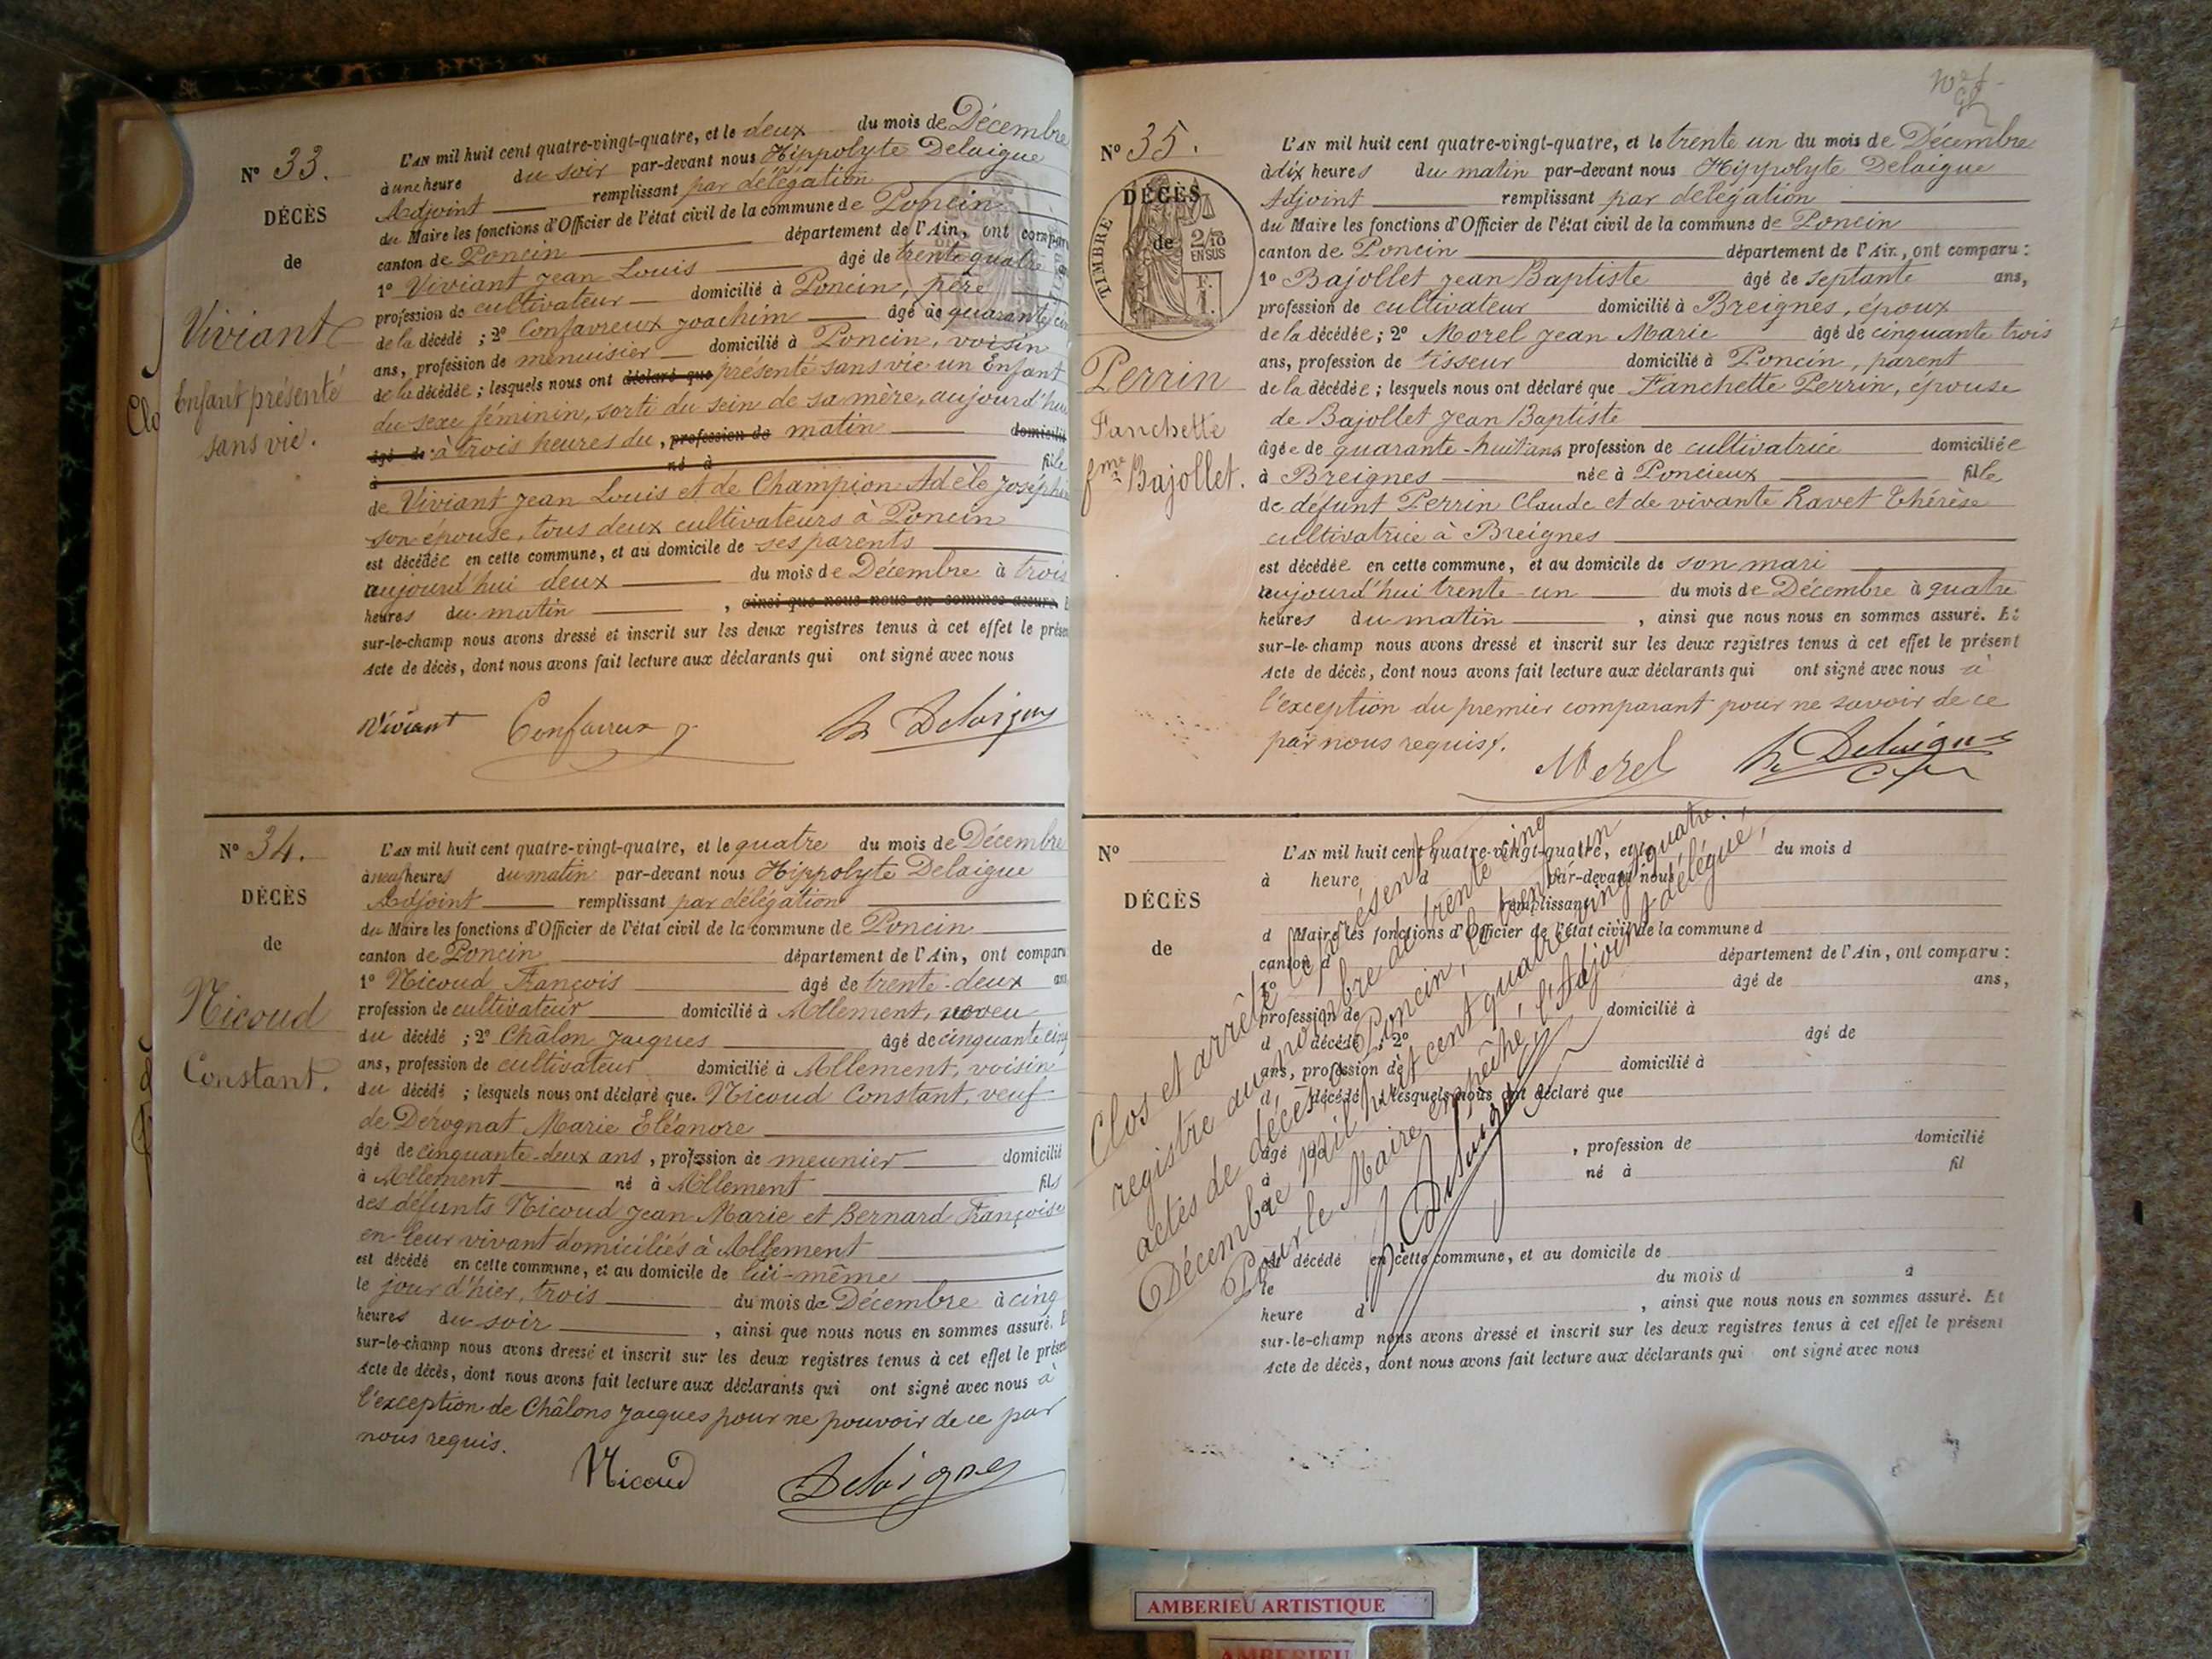 N° 33.
DÉCÈS
de
Viviant
Enfant présenté
sans vie.
L'AN mil huit cent quatre-vingt-quatre, et le deux du mois de Décembre
à une heure du soir par-devant nous Hippolyte Delaigue
Adjoint remplissant par délégation
du Maire les fonctions d'Officier de l'état civil de la commune de Poncin
canton de Poncin département de l'Ain, ont comparu
1° Viviant Jean Louis âgé de trente quatre
profession de cultivateur domicilié à Poncin, père
de la décédé ; 2° Confavreux Joachim âgé de quarante
ans, profession de menuisier domicilié à Poncin, voisin
de la décédée ; lesquels nous ont déclaré que présenté sans vie un Enfant
du sexe féminin, sorti du sein de sa mère, aujourd'hui
âgé de à trois heures du, profession de matin domicilié
à né à fille
de Viviant Jean Louis et de Champion Adèle Joséphine
son épouse, tous deux cultivateurs à Poncin
est décédée en cette commune, et au domicile de ses parents
aujourd'hui deux du mois de Décembre à trois
heures du matin , ainsi que nous nous en sommes assuré. E
sur-le-champ nous avons dressé et inscrit sur les deux registres tenus à cet effet le présen
Acte de décès, dont nous avons fait lecture aux déclarants qui ont signé avec nous
Viviant Confavreux J H Delaigue
N° 34.
DÉCÈS
de
Nicoud
Constant.
L'AN mil huit cent quatre-vingt-quatre, et le quatre du mois de Décembre
à neuf heures du matin par-devant nous Hippolyte Delaigue
Adjoint remplissant par délégation
du Maire les fonctions d'Officier de l'état civil de la commune de Poncin
canton de Poncin département de l'Ain, ont comparu
1° Nicoud François âgé de trente-deux ans
profession de cultivateur domicilié à Allement, neveu
du décédé ; 2° Châlon Jacques âgé de cinquante cinq
ans, profession de cultivateur domicilié à Allement, voisin
du décédé ; lesquels nous ont déclaré que Nicoud Constant, veuf
de Dérognat Marie Eléonore
âgé de cinquante-deux ans, profession de meunier domicilié
à Allement né à Allement fils
des défunts Nicoud Jean Marie et Bernard Françoise
en leur vivant domiciliés à Allement
est décédé en cette commune, et au domicile de lui-même
le jour d'hier, trois du mois de Décembre à cinq
heures du soir , ainsi que nous nous en sommes assuré. E
sur-le-champ nous avons dressé et inscrit sur les deux registres tenus à cet effet le présen
Acte de décès, dont nous avons fait lecture aux déclarants qui ont signé avec nous à
l'exception de Châlons Jacques pour ne pouvoir de ce par
nous requis.
Nicoud Delaigue
N° 35.
TIMBRE
2/10
EN SUS
F.
1.
DÉCÈS
de
Perrin
Fanchette
fme Bajollet.
L'AN mil huit cent quatre-vingt-quatre, et le trente un du mois de Décembre
à dix heures du matin par-devant nous Hippolyte Delaigue
Adjoint remplissant par délégation
du Maire les fonctions d'Officier de l'état civil de la commune de Poncin
canton de Poncin département de l'Ain, ont comparu :
1° Bajollet Jean Baptiste âgé de septante ans,
profession de cultivateur domicilié à Breignes, époux
de la décédée ; 2° Morel Jean Marie âgé de cinquante trois
ans, profession de tisseur domicilié à Poncin, parent
de la décédée ; lesquels nous ont déclaré que Fanchette Perrin, épouse
de Bajollet Jean Baptiste
âgée de quarante-huit ans profession de cultivatrice domiciliée
à Breignes née à Poncieux fille
de défunt Perrin Claude et de vivante Ravet Thérèse
cultivatrice à Breignes
est décédée en cette commune, et au domicile de son mari
aujourd'hui trente-un du mois de Décembre à quatre
heures du matin , ainsi que nous nous en sommes assuré. Et
sur-le-champ nous avons dressé et inscrit sur les deux registres tenus à cet effet le présent
Acte de décès, dont nous avons fait lecture aux déclarants qui ont signé avec nous à
l'exception du premier comparant pour ne savoir de ce
par nous requis.
Morel H Delaigue
N°
DÉCÈS
de
L'AN mil huit cent quatre-vingt-quatre, et le du mois d
à heure d par-devant nous
remplissant
d Maire les fonctions d'Officier de l'état civil de la commune d
canton d département de l'Ain, ont comparu :
1° âgé de ans,
profession de domicilié à
d décédé ; 2° âgé de
ans, profession de domicilié à
d décédé ; lesquels nous ont déclaré que
âgé de , profession de domicilié
à né à fil
d
est décédé en cette commune, et au domicile de
le du mois d à
heure d , ainsi que nous nous en sommes assuré. Et
sur-le-champ nous avons dressé et inscrit sur les deux registres tenus à cet effet le présent
Acte de décès, dont nous avons fait lecture aux déclarants qui ont signé avec nous
Clos et arrêté le présent
registre au nombre de trente cinq
actes de décès, à Poncin, le trente un
Décembre mil huit cent quatre vingt quatre.
Pour le Maire empêché, l'Adjoint délégué,
H. Delaigue
AMBERIEU ARTISTIQUE
AMBERIEU